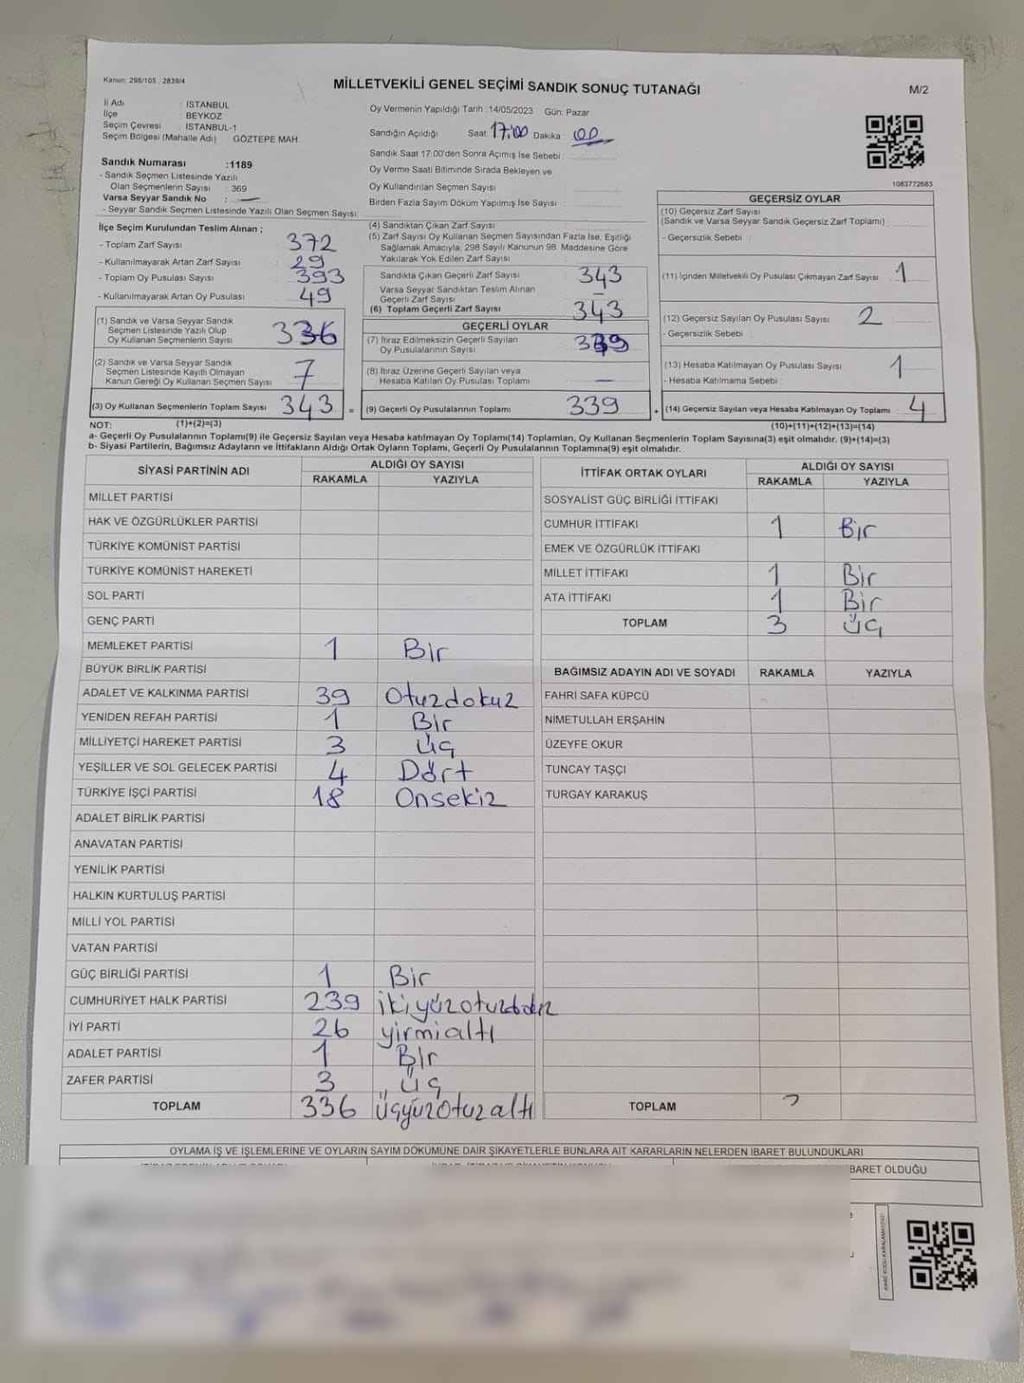 Kanun: 298/105 , 2839/4
MİLLETVEKİLİ GENEL SEÇİMİ SANDIK SONUÇ TUTANAĞI
M/2
İl Adı : İSTANBUL
İlçe BEYKOZ
Seçim Çevresi : İSTANBUL-1
Seçim Bölgesi (Mahalle Adı) : GÖZTEPE MAH.
Oy Vermenin Yapıldığı Tarih : 14/05/2023 Gün: Pazar
Sandığın Açıldığı Saat 17:00 Dakika 00
Sandık Saat 17:00'den Sonra Açımış İse Sebebi :
Oy Verme Saati Bitiminde Sırada Bekleyen ve
Oy Kullandırılan Seçmen Sayısı
Birden Fazla Sayım Döküm Yapılmış İse Sayısı
1083772683
Sandık Numarası :1189
- Sandık Seçmen Listesinde Yazılı
Olan Seçmenlerin Sayısı : 369
Varsa Seyyar Sandık No : —
- Seyyar Sandık Seçmen Listesinde Yazılı Olan Seçmen Sayısı:
İlçe Seçim Kurulundan Teslim Alınan ;
- Toplam Zarf Sayısı 372
- Kullanılmayarak Artan Zarf Sayısı 29
- Toplam Oy Pusulası Sayısı 393
- Kullanılmayarak Artan Oy Pusulası 49
(1) Sandık ve Varsa Seyyar Sandık
Seçmen Listesinde Yazılı Olup
Oy Kullanan Seçmenlerin Sayısı 336
(2) Sandık ve Varsa Seyyar Sandık
Seçmen Listesinde Kayıtlı Olmayan
Kanun Gereği Oy Kullanan Seçmen Sayısı 7
(3) Oy Kullanan Seçmenlerin Toplam Sayısı 343 =
(4) Sandıktan Çıkan Zarf Sayısı
(5) Zarf Sayısı Oy Kullanan Seçmen Sayısından Fazla İse, Eşitliği
Sağlamak Amacıyla, 298 Sayılı Kanunun 98. Maddesine Göre
Yakılarak Yok Edilen Zarf Sayısı
Sandıkta Çıkan Geçerli Zarf Sayısı 343
Varsa Seyyar Sandıktan Teslim Alınan
Geçerli Zarf Sayısı —
(6) Toplam Geçerli Zarf Sayısı 343
GEÇERLİ OYLAR
(7) İtiraz Edilmeksizin Geçerli Sayılan
Oy Pusulalarının Sayısı 339
(8) İtiraz Üzerine Geçerli Sayılan veya
Hesaba Katılan Oy Pusulası Toplamı —
(9) Geçerli Oy Pusulalarının Toplamı 339 +
GEÇERSİZ OYLAR
(10) Geçersiz Zarf Sayısı
(Sandık ve Varsa Seyyar Sandık Geçersiz Zarf Toplamı)
- Geçersizlik Sebebi :
(11) İçinden Milletvekili Oy Pusulası Çıkmayan Zarf Sayısı 1
(12) Geçersiz Sayılan Oy Pusulası Sayısı 2
- Geçersizlik Sebebi :
(13) Hesaba Katılmayan Oy Pusulası Sayısı 1
- Hesaba Katılmama Sebebi :
(14) Geçersiz Sayılan veya Hesaba Katılmayan Oy Toplamı 4
NOT: (1)+(2)=(3) (10)+(11)+(12)+(13)=(14)
a- Geçerli Oy Pusulalarının Toplamı(9) ile Geçersiz Sayılan veya Hesaba katılmayan Oy Toplamı(14) Toplamları, Oy Kullanan Seçmenlerin Toplam Sayısına(3) eşit olmalıdır. (9)+(14)=(3)
b- Siyasi Partilerin, Bağımsız Adayların ve İttifakların Aldığı Ortak Oyların Toplamı, Geçerli Oy Pusulalarının Toplamına(9) eşit olmalıdır.
SİYASİ PARTİNİN ADI ALDIĞI OY SAYISI
RAKAMLA YAZIYLA
MİLLET PARTİSİ
HAK VE ÖZGÜRLÜKLER PARTİSİ
TÜRKİYE KOMÜNİST PARTİSİ
TÜRKİYE KOMÜNİST HAREKETİ
SOL PARTİ
GENÇ PARTİ
MEMLEKET PARTİSİ 1 Bir
BÜYÜK BİRLİK PARTİSİ
ADALET VE KALKINMA PARTİSİ 39 Otuzdokuz
YENİDEN REFAH PARTİSİ 1 Bir
MİLLİYETÇİ HAREKET PARTİSİ 3 Üç
YEŞİLLER VE SOL GELECEK PARTİSİ 4 Dört
TÜRKİYE İŞÇİ PARTİSİ 18 Onsekiz
ADALET BİRLİK PARTİSİ
ANAVATAN PARTİSİ
YENİLİK PARTİSİ
HALKIN KURTULUŞ PARTİSİ
MİLLİ YOL PARTİSİ
VATAN PARTİSİ
GÜÇ BİRLİĞİ PARTİSİ 1 Bir
CUMHURİYET HALK PARTİSİ 239 ikiyüzotuzdokuz
İYİ PARTİ 26 yirmialtı
ADALET PARTİSİ 1 Bir
ZAFER PARTİSİ 3 Üç
TOPLAM 336 Üçyüzotuzaltı
İTTİFAK ORTAK OYLARI ALDIĞI OY SAYISI
RAKAMLA YAZIYLA
SOSYALİST GÜÇ BİRLİĞİ İTTİFAKI
CUMHUR İTTİFAKI 1 Bir
EMEK VE ÖZGÜRLÜK İTTİFAKI
MİLLET İTTİFAKI 1 Bir
ATA İTTİFAKI 1 Bir
TOPLAM 3 Üç
BAĞIMSIZ ADAYIN ADI VE SOYADI RAKAMLA YAZIYLA
FAHRİ SAFA KÜPCÜ
NİMETULLAH ERŞAHİN
ÜZEYFE OKUR
TUNCAY TAŞÇI
TURGAY KARAKUŞ
TOPLAM
OYLAMA İŞ VE İŞLEMLERİNE VE OYLARIN SAYIM DÖKÜMÜNE DAİR ŞİKAYETLERLE BUNLARA AİT KARARLARIN NELERDEN İBARET BULUNDUKLARI
BARET OLDUĞU